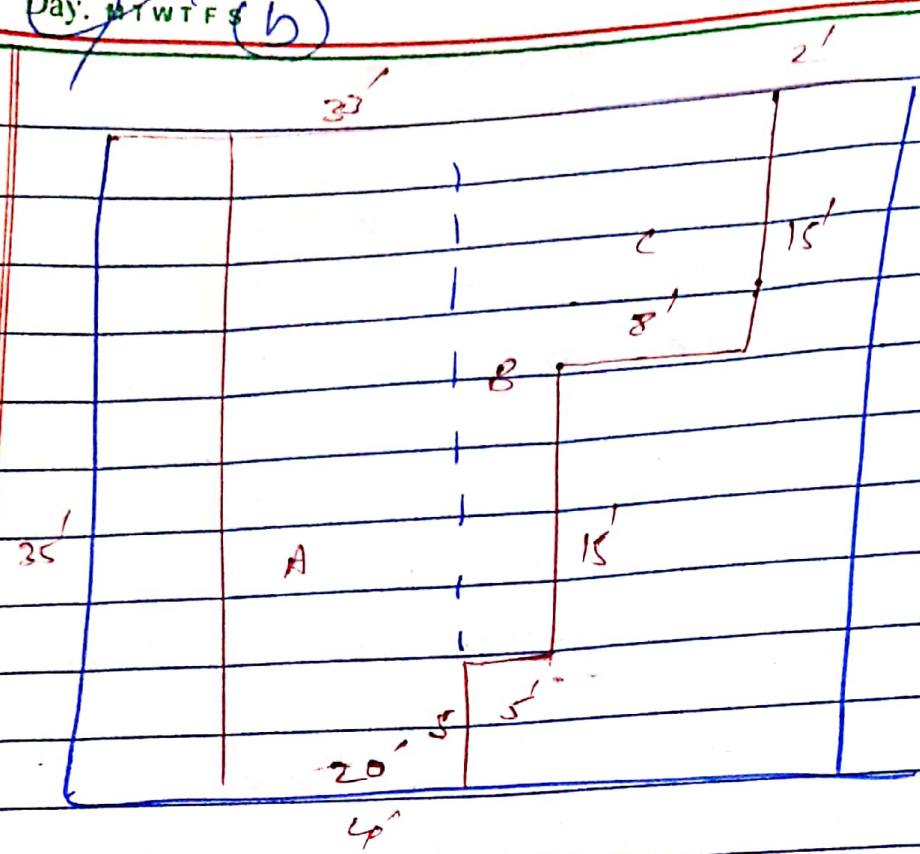 Day. M T W T F S (b)
2'
33'
C 15'
8'
B
35' A 15'
5 5'
20'
4'